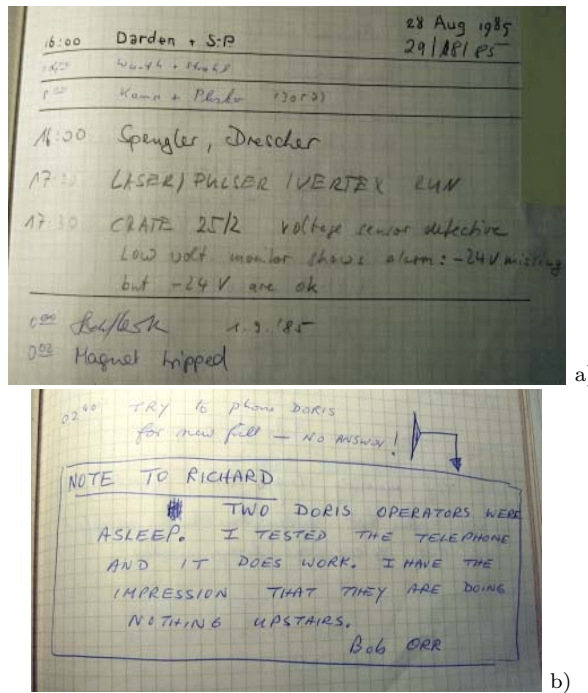 28 Aug 1985
16:00 Darden + S-P
29/18/85
16:00 Spengler, Drescher
LASER/PULSER/VERTEX RUN
17:30 CRATE 25/2 voltage sensor defective
Low volt. monitor shows alarm: -24V missing
but -24V are ok
0:00 1.9.'85
0:02 Magnet tripped
a)
02:40 TRY to phone DORIS
for new fill — NO ANSWER!
NOTE TO RICHARD
TWO DORIS OPERATORS WERE
ASLEEP. I TESTED THE TELEPHONE
AND IT DOES WORK. I HAVE THE
IMPRESSION THAT THEY ARE DOING
NOTHING UPSTAIRS.
Bob ORR
b)